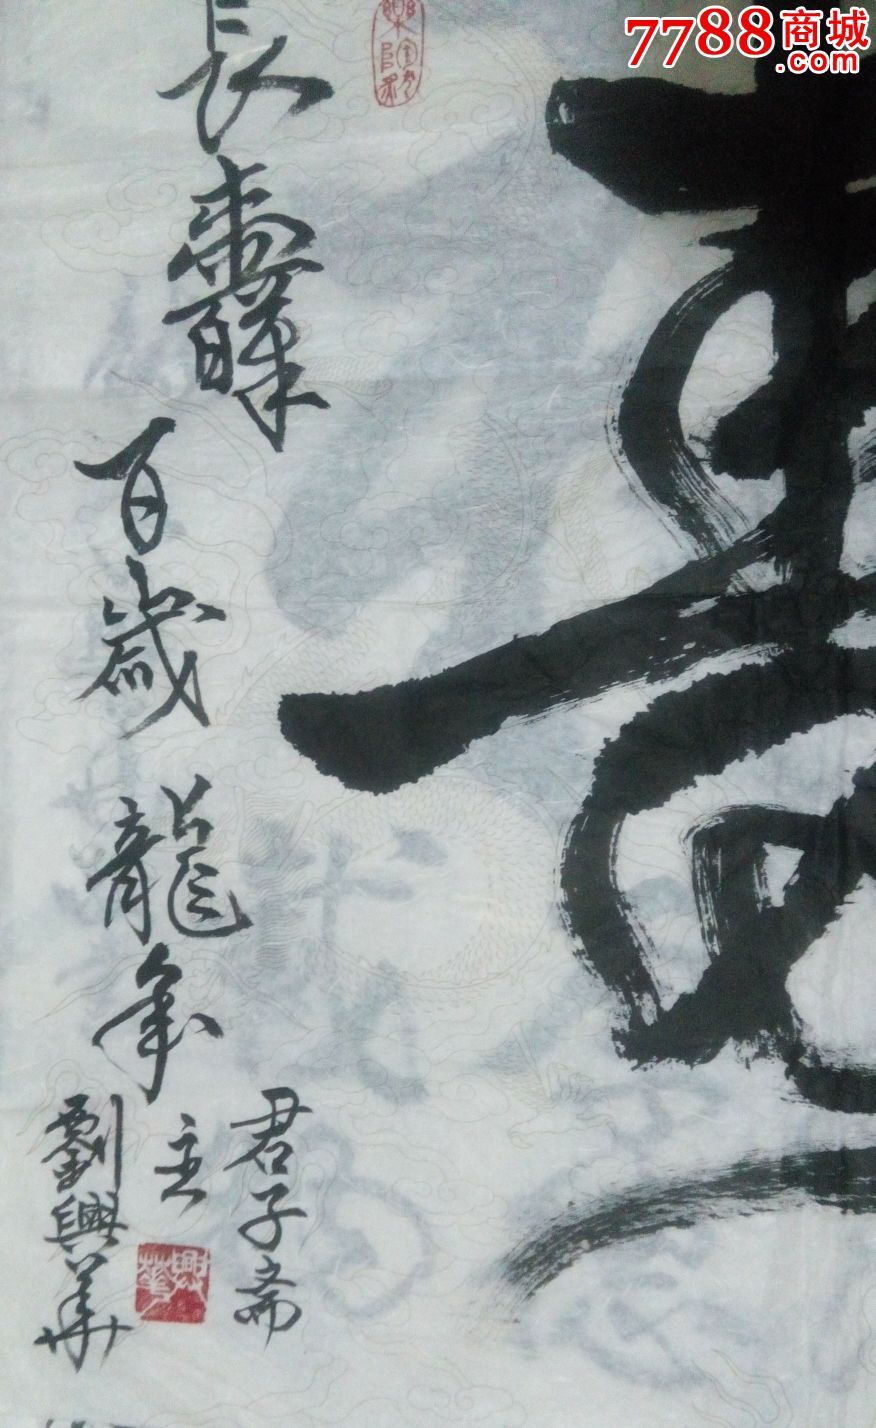 7788商城
.com
寿
長
百歲
龍年
君子斋
主
劉興華
興華